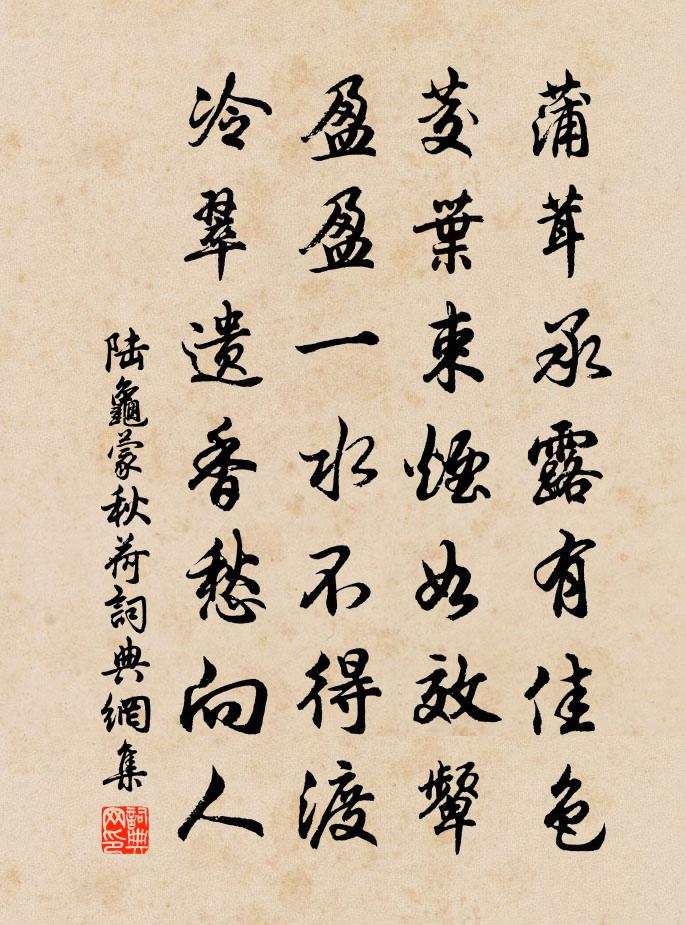 蒲茸承露有佳色
茭葉束煙如效顰
盈盈一水不得渡
冷翠遺香愁向人
陆龜蒙秋荷詞典網集
詞典网印